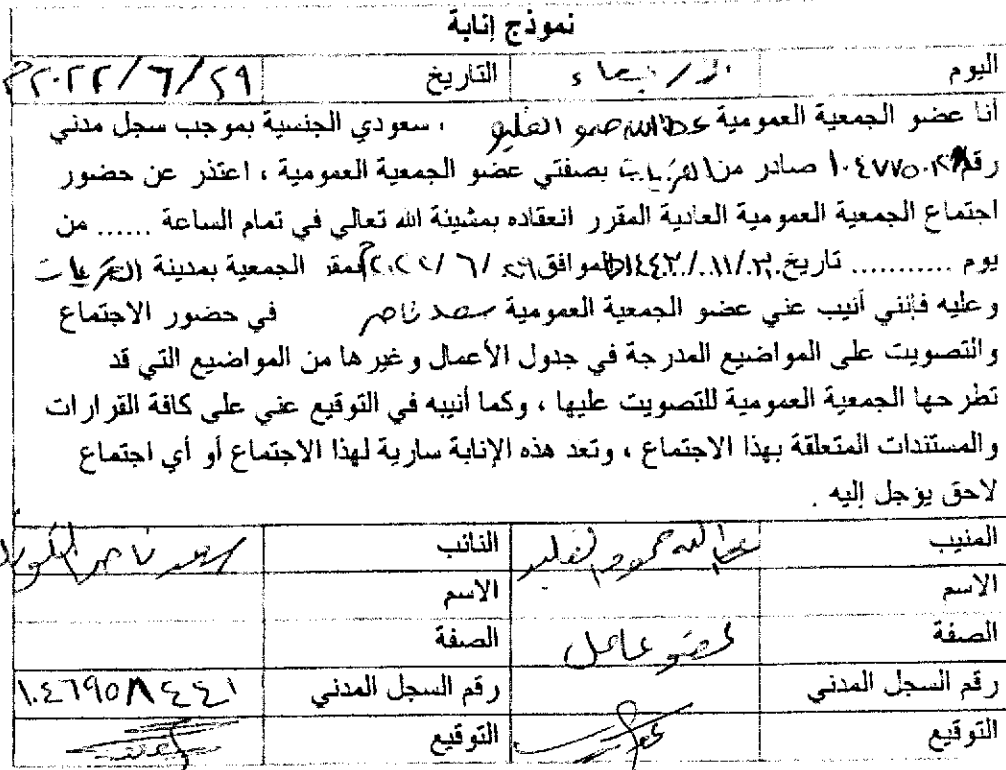 نموذج إنابة
اليوم الاربعاء التاريخ ٢٠٢٢/٦/٢٩م
أنا عضو الجمعية العمومية عطاالله حمود ، سعودي الجنسية بموجب سجل مدني
رقم صادر من القريات بصفتي عضو الجمعية العمومية ، اعتذر عن حضور
اجتماع الجمعية العمومية العادية المقرر انعقاده بمشيئة الله تعالى في تمام الساعة ...... من
يوم ........... تاريخ ٣٠/١١/١٤٤٣ الموافق ٢٩/٦/٢٠٢٢م بمقر الجمعية بمدينة القريات
وعليه فإنني أنيب عني عضو الجمعية العمومية سعد ناصر في حضور الاجتماع
والتصويت على المواضيع المدرجة في جدول الأعمال وغيرها من المواضيع التي قد
تطرحها الجمعية العمومية للتصويت عليها ، وكما أنيبه في التوقيع عني على كافة القرارات
والمستندات المتعلقة بهذا الاجتماع ، وتعد هذه الإنابة سارية لهذا الاجتماع أو أي اجتماع
لاحق يؤجل إليه .
المنيب عطاالله حمود النائب سعد ناصر
الاسم الاسم
الصفة عضو عامل الصفة
رقم السجل المدني رقم السجل المدني ١٠٤٦٩٥٨٤٤١
التوقيع التوقيع